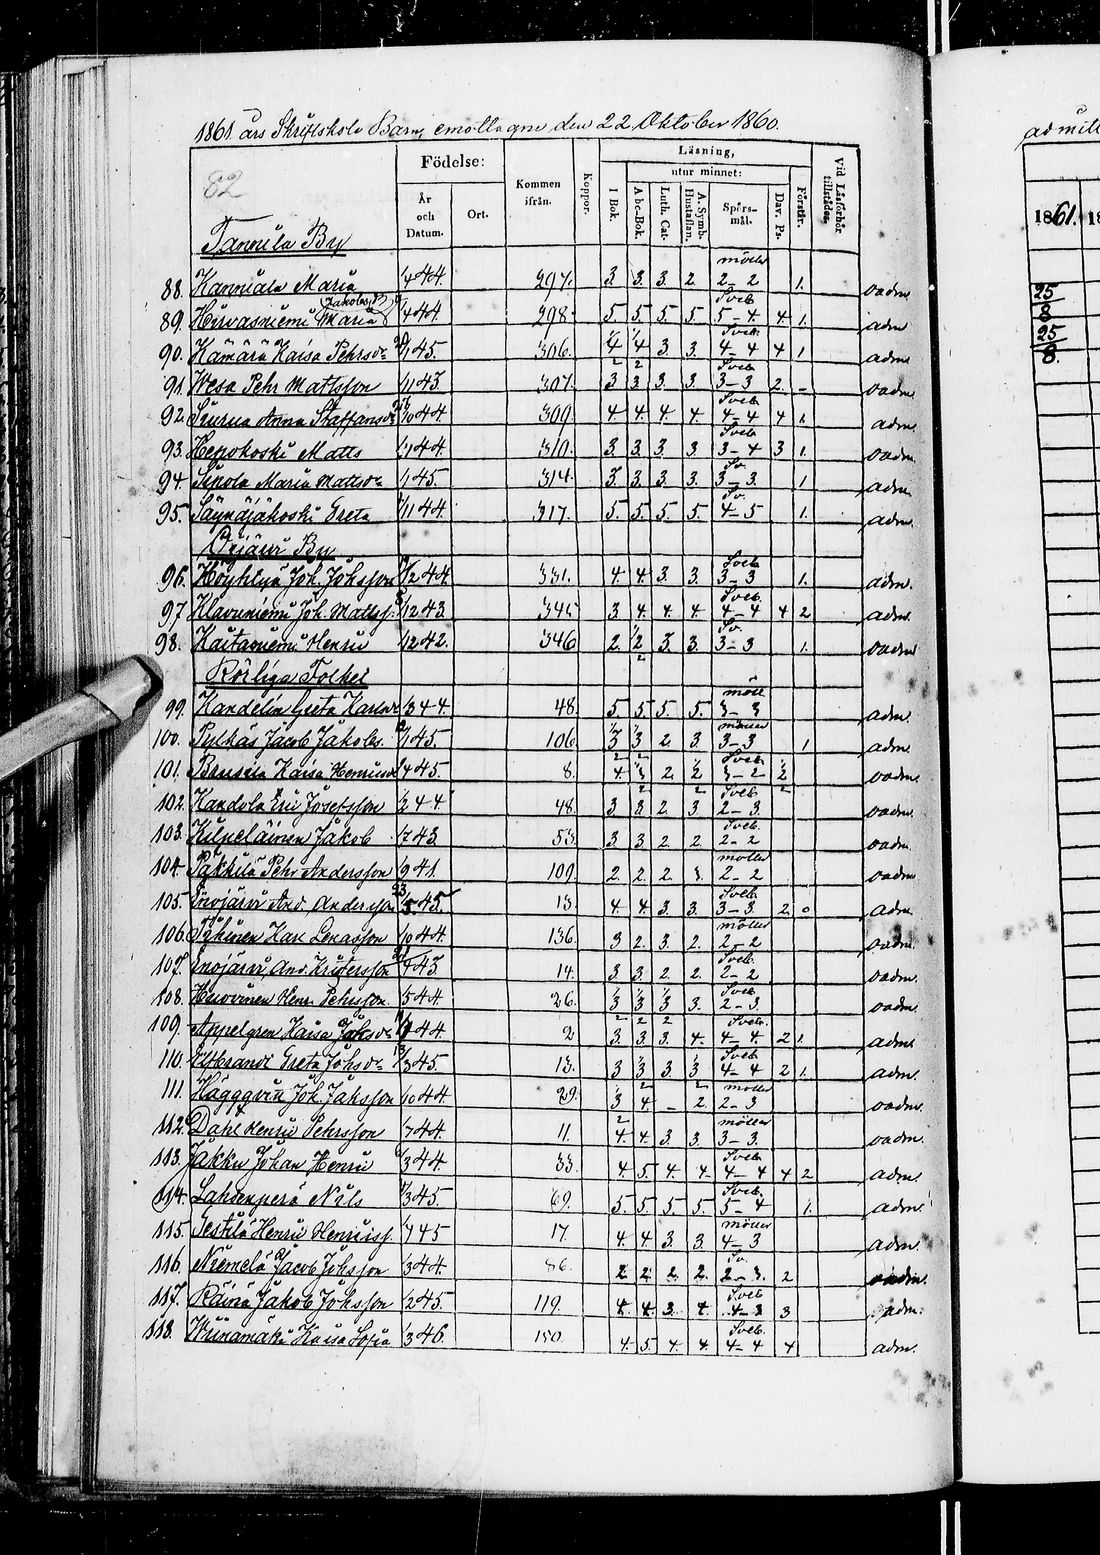 1861 års Skriftskole Barn, emottagne den 22 Oktober 1860.
82
Födelse: Kommen ifrån. Koppor. Läsning, Vid Läsförhör tillstädes.
utur minnet:
År och Datum. Ort. I Bok. Abc-Bok. Luth. Cat. A. Symb. Hustaflan. Spörsmål. Dav. Ps. Förstår.
Tannila By
88. Kanniala Maria 4 44. 297. 3 3. 3. 2. möller 2-2 1. oadm
89. Hirvasniemi Maria Jakobs 4 44. 298. 5 5. 5. 5 Sveb. 5-4 4 1. adm
90. Hämärä Kaisa Pehrsdr 1 45. 306. 4 4 3. 3. Sveb. 4-4 4 1 adm
91. Wesa Pehr Mattsson 11 43. 307. 3 3 3. 3. Sveb. 3-3 2. - oadm.
92. Anna Staffansdr 10 44. 309. 4. 4. 4. 4. Sveb. 4-4 4 1. adm.
93. Hepokoski Matts 11 44. 310. 3. 3. 3. 3 Sveb. 3-4 3 1. oadm.
94 Sipola Maria Mattsdr 1 45. 314. 3. 3. 3. 3. Sv. 3-3. 1 adm.
95. Säynäjäkoski Greta 11 44. 317. 5. 5. 5. 5. Sv. 4-5 1. adm.
Oijärvi By
96. Höyhtyä Joh. Johsson 12 44. 331. 4. 4. 3. 3. Sveb. 3-3 1. adm.
97 Klaavuniemi Joh. Mattss. 12 43. 345 3 4. 4. 4. Sveb. 4-4 4 2 adm.
98. Kaitaniemi Henric 12 42. 346 2. 2 3. 3. Sv. 3-3 1. oadm
Rörliga Folket
99. Kandelin Greta Karlsdr 3 44. 48. 5. 5 5. 5. möll 3-3 adm.
100. Pylkäs Jacob Jakobs. 1 45. 106. 3 3 2. 3. möller 3-3 1 adm.
101. Kaisa Henricsdr 4 45. 8. 4. 3 2. 2 Sveb. 3-2 2 oadm.
102. Kandola Eric Josefsson 2 44 48. 3 3 2. 3. Sveb. 2-3. oadm.
103. Kilpeläinen Jakob 7 43 53. 3 3. 2. 2 Sveb. 2-2 oadm.
104. Päkkilä Pehr Andersson 9 41. 109. 2. 2. 2. 3. möller 2-2 oadm
105. Enojärvi And. Anderss. 5. 45. 13. 4. 4. 3. 3. Sveb. 3-3. 2. 0 adm.
106. Karl Lenasson 10 44. 136. 3 2. 3. 2. möller 2-2 oadm.
107. Enojärvi, And. Kristersson 7 43. 14. 3. 3. 2. 2. Sveb. 2-2 oadm.
108. Huovinen Henr. Pehrsson. 5 44. 26. 3 3 3 3. Sveb. 2-3. oadm.
109. Appelgren Kaisa Johsdr 1 44. 2 3. 3. 3. 4. Sveb. 4-4. 2 1. adm.
110. Elfbrandt Greta Johsdr 3 45. 13. 3 3 3. 3 Sveb. 4-4 2 1. adm.
111. Häggqvist Joh. Johsson 10 44 29. 3 4. - 2. möller 2-3 oadm.
112. Dahl Henric Pehrsson 7 44. 11. 4. 4. 3. 3. möller 3-3. oadm.
113. Jakku Johan Henric 3 44. 33. 4. 5. 4. 4. Sveb. 4-4 4 2 adm.
114. Lahdenperä Nils 3 45. 69. 5. 5. 5. 5. Sveb. 5-4 1. adm.
115. Testilä Henric Henricss. 7 45 17. 4. 4. 3. 3. möller 4-3 adm.
116. Niemelä Jacob Johsson 3 44. 86. 2. 2. 2. 2. Sv. 2-3. 2 oadm.
117. Räinä Jakob Johsson 2 45. 119. 4. 4. 3. 4. Sveb. 4-3 3 adm.
118. Kaisa Sofia 3 46. 150. 4. 5. 4. 4. Sveb. 4-4 4 adm.
admitt
1861.
25
8
25
8.